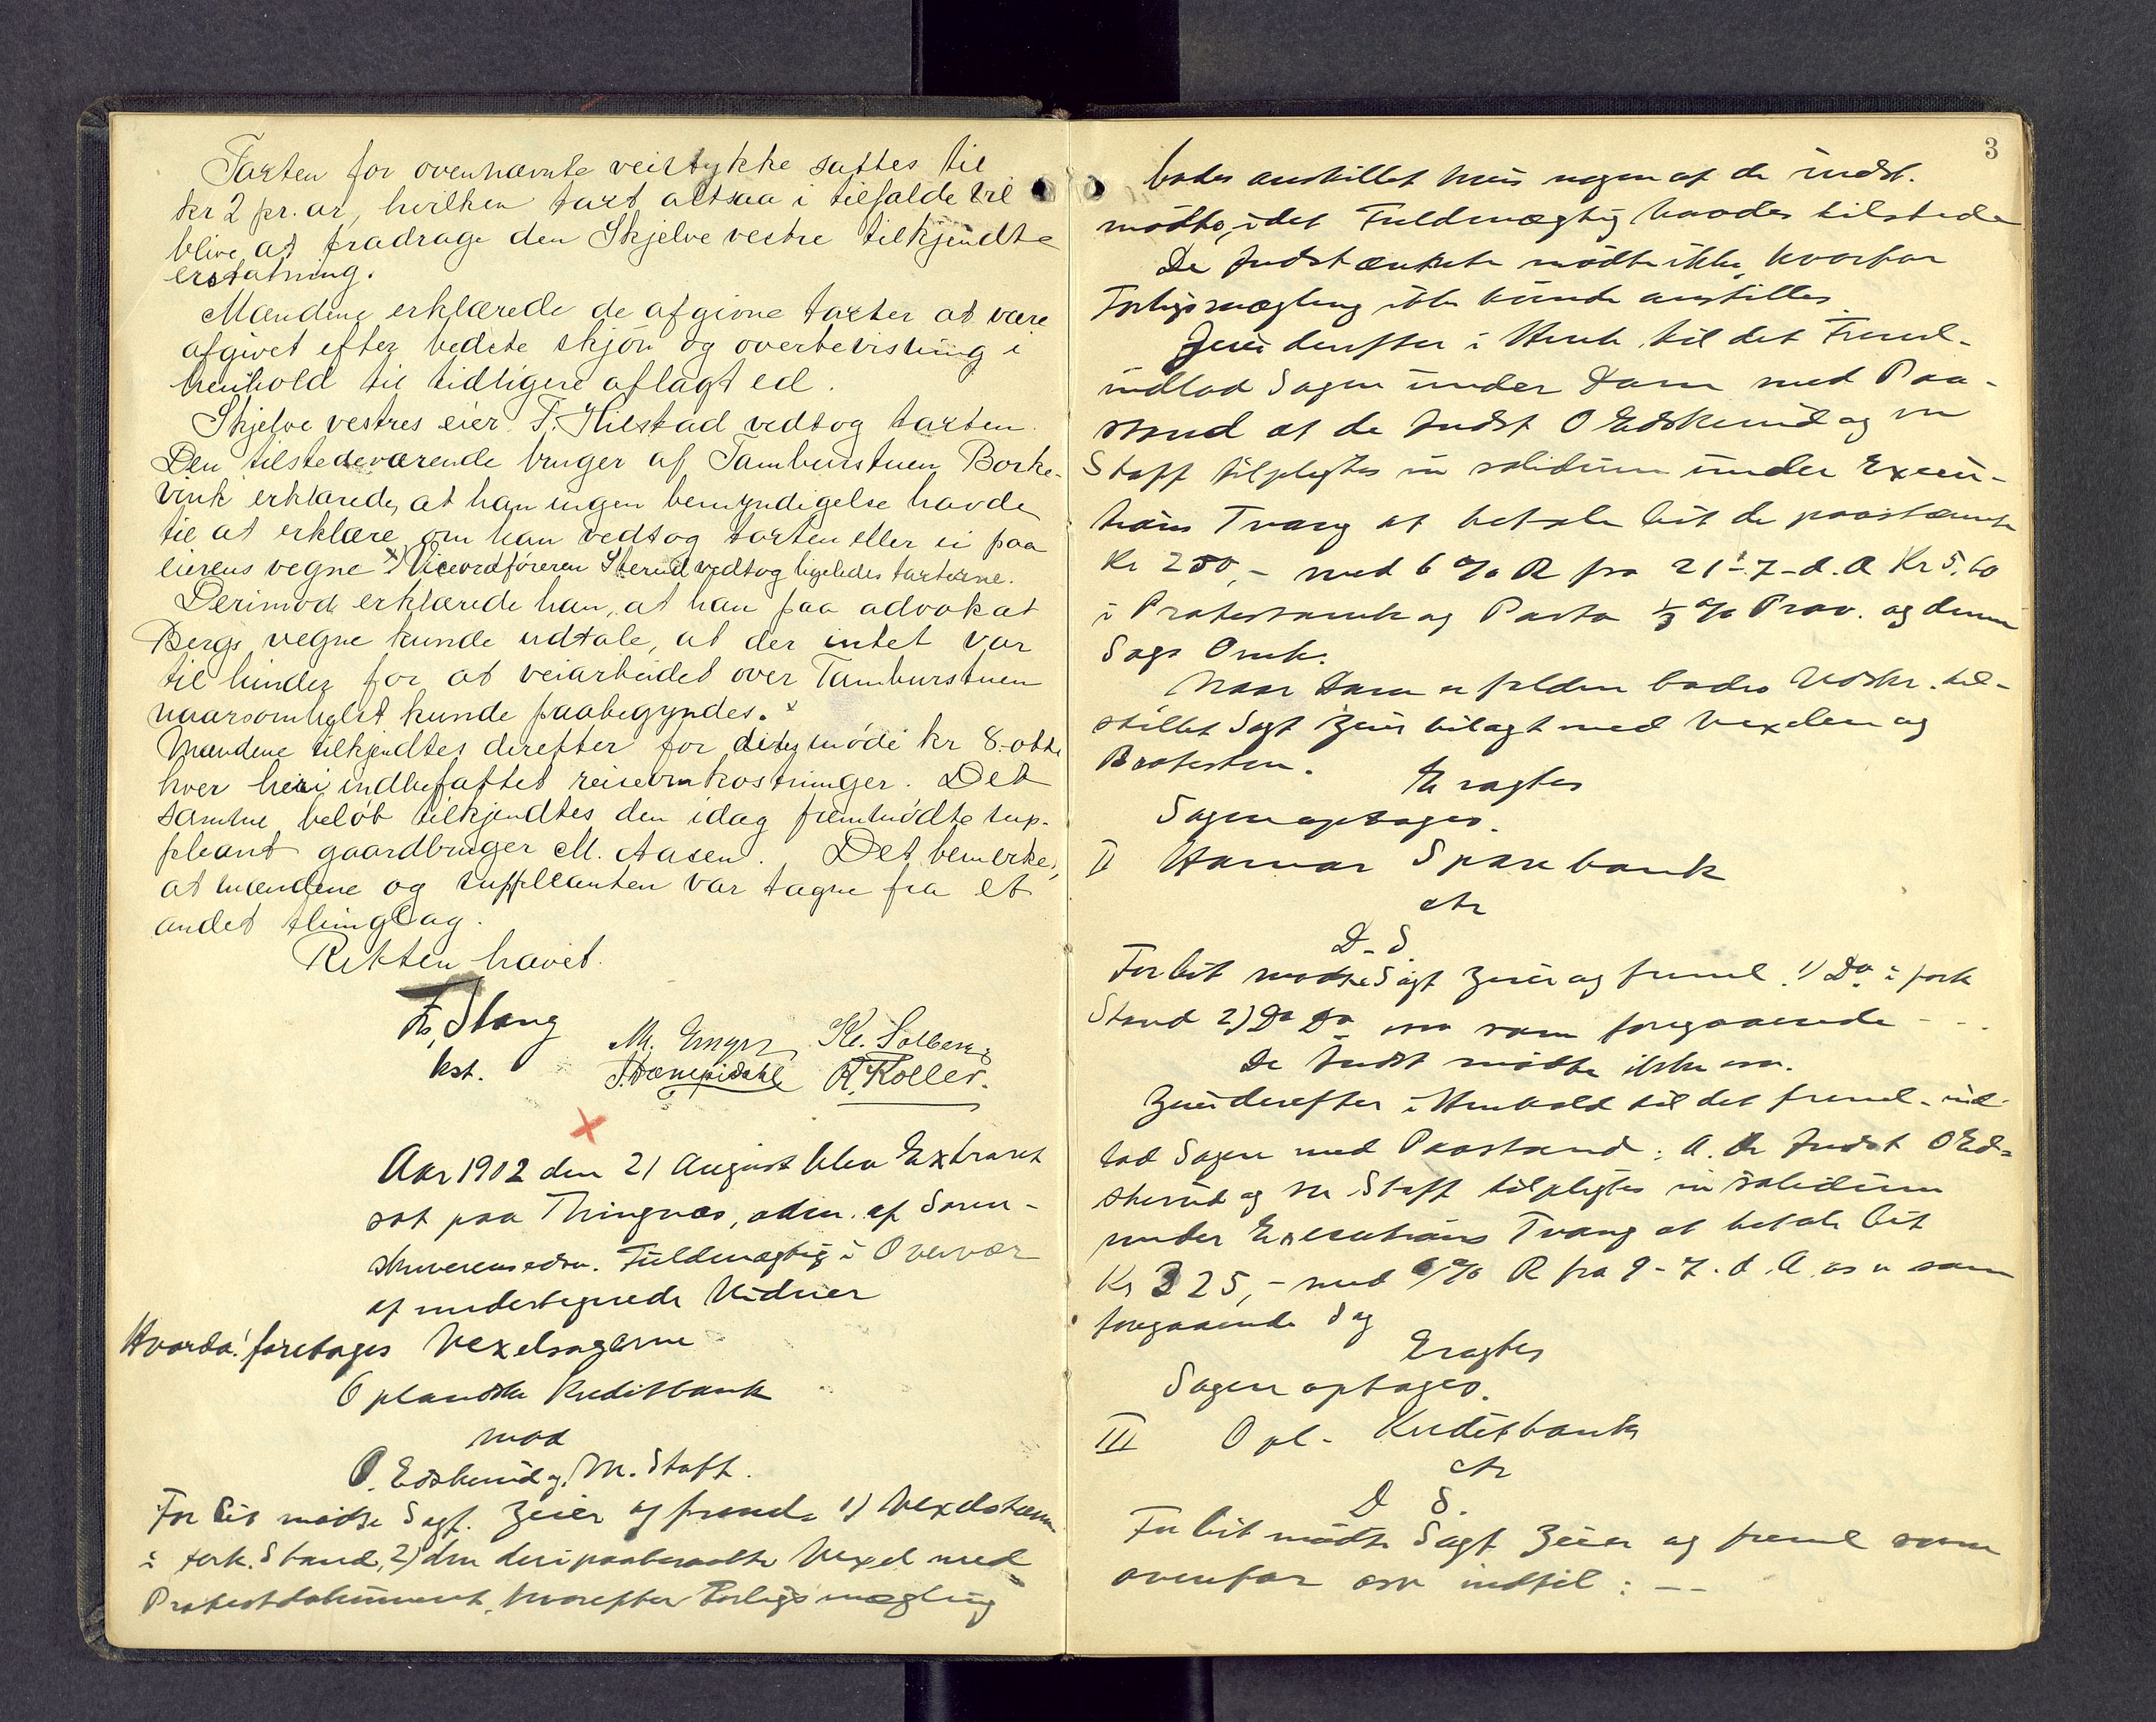 Taxten for ovennævnte veistykke sattes til
kr 2 pr. ar, hvilken taxt altsaa i tilfælde vil
blive at fradrage den Skjelve vestre tilkjendte
erstatning.
Mændene erklærede de afgivne taxter at være
afgivet efter bedste skjøn og overbevisning i
henhold til tidligere aflagt ed.
Skjelve vestres eier F. Hilstad vedtog taxten.
Den tilstedeværende bruger af Tamburstuen Borke-
vink erklærede, at han ingen bemyndigelse havde
til at erklære om han vedtog taxten eller ei paa
eierens vegne x) Viceordføreren Sterud vedtog ligeledes taxterne.
Derimod erklærede han, at han paa advokat
Bergs vegne kunde udtale, at der intet var
til hinder for at veiarbeidet over Tamburstuen
naarsomhelst kunde paabegyndes. x
Mændene tilkjendtes derefter for dette møde kr 8 - otte
hver heri indbefattet reiseomkostninger. Det
samme beløb tilkjendtes den idag fremmødte sup-
pleant gaardbruger M. Aasen. Det bemerkes,
at mændene og suppleanten var tagne fra et
andet thinglag.
Retten hævet.
Fr. Stang
kst.
M. Enger Kl. Solberg
R. Koller.
Aar 1902 den 21 August blev Extraret
sat paa Thingnæs, adm. af Soren-
skriverens edsv. Fuldmægtig i Overvær
af undertegnede Vidner
Hvorda! foretoges Vexelsagerne
Oplandske Kreditbank
mod
O. Edskerud og M. Staff.
For Cit mødte Sagf. Zeier og fremla 1) Vexelstævn
i fork. Stand, 2) den deri paaberaabte Vexel med
Protestdokument, hvorefter Forligsmægling
3
bødes anstillet hvis nogen af de indst.
mødte, idet Fuldmægtig havdes tilstede
De Indstævnte mødte ikke, hvorfor
Forligsmægling ikke kunde anstilles.
Zeier derefter i Henh. til det Freml.
indlod Sagen under Dom med Paa-
stand at de Indst O Edskerud og M
Staff tilpligtes in solidum under Execu-
tions Tvang at betale Cit de paastævnte
Kr 250,- med 6 % R fra 21-7-d.A Kr 5,60
i Protestomk og Porto 1/3 % Prov. og denne
Sags Omk.
Naar Dom er falden bødes Udskr. til-
stillet Sagf Zeier bilagt med Vexelen og
Protesten.
Eragtes
Sagen optages.
II Hamar Sparebank
ctr
D. S.
For Cit mødte Sagf Zeier og freml. 1) Do. i fork
Stand 2) Do Do osv som foregaaende - - -
De Indst mødte ikke osv.
Zeier derefter i Henhold til det freml. ind-
lod Sagen med Paastand: A. De Indst O Ed-
skerud og M Staff tilpligtes in solidum
under Executions Tvang at betale Cit
Kr 325,- med 6 % R fra 9-7-d.A. osv som
foregaaende Sag
Eragtes
Sagen optages.
III Opl. Kreditbank
ctr
D S.
For Cit mødte Sagf Zeier og freml som
ovenfor osv indtil: - -